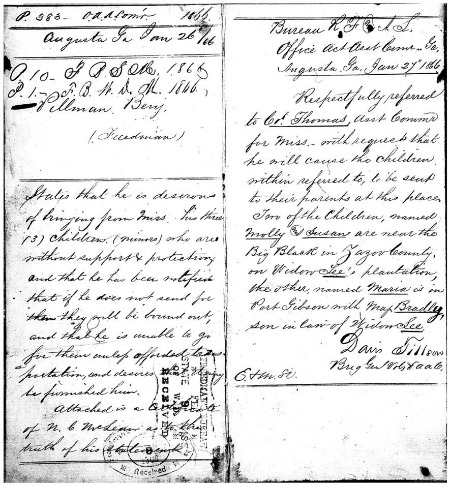 P. 383 - 1866
Augusta Ga Jan 26/66
O. 10 - F B S M. 1866
P. 1 - F. B. W. D. M. 1866
Pillman, Benj.
(Freedman)
States that he is desirous
of bringing from Miss. his three
(3) children, (minors) who are
without support & protection,
and that he has been notified
that if he does not send for
them they will be bound out,
and that he is unable to go
for them unless afforded trans
portation, and desires
be furnished him.
Attached is a
of N. C. as to the
truth of his statement
RECEIVED
Received
Bureau R. F. & A. L.
Office Act Asst Comr - Ga.
Augusta, Ga, Jan 27 1866
Respectfully referred
to Col Thomas, Asst Commr
for Miss. with request that
he will cause the children
within referred to, to be sent
to their parents at this place
Two of the Children, named
Molly & Susan are near the
Big Black in Yazoo County,
on Widow See's plantation,
the other, named Maria is in
Port Gibson with Maj Bradley,
son in law of Widow See
Davis Tillson
Brig Gen Vols &